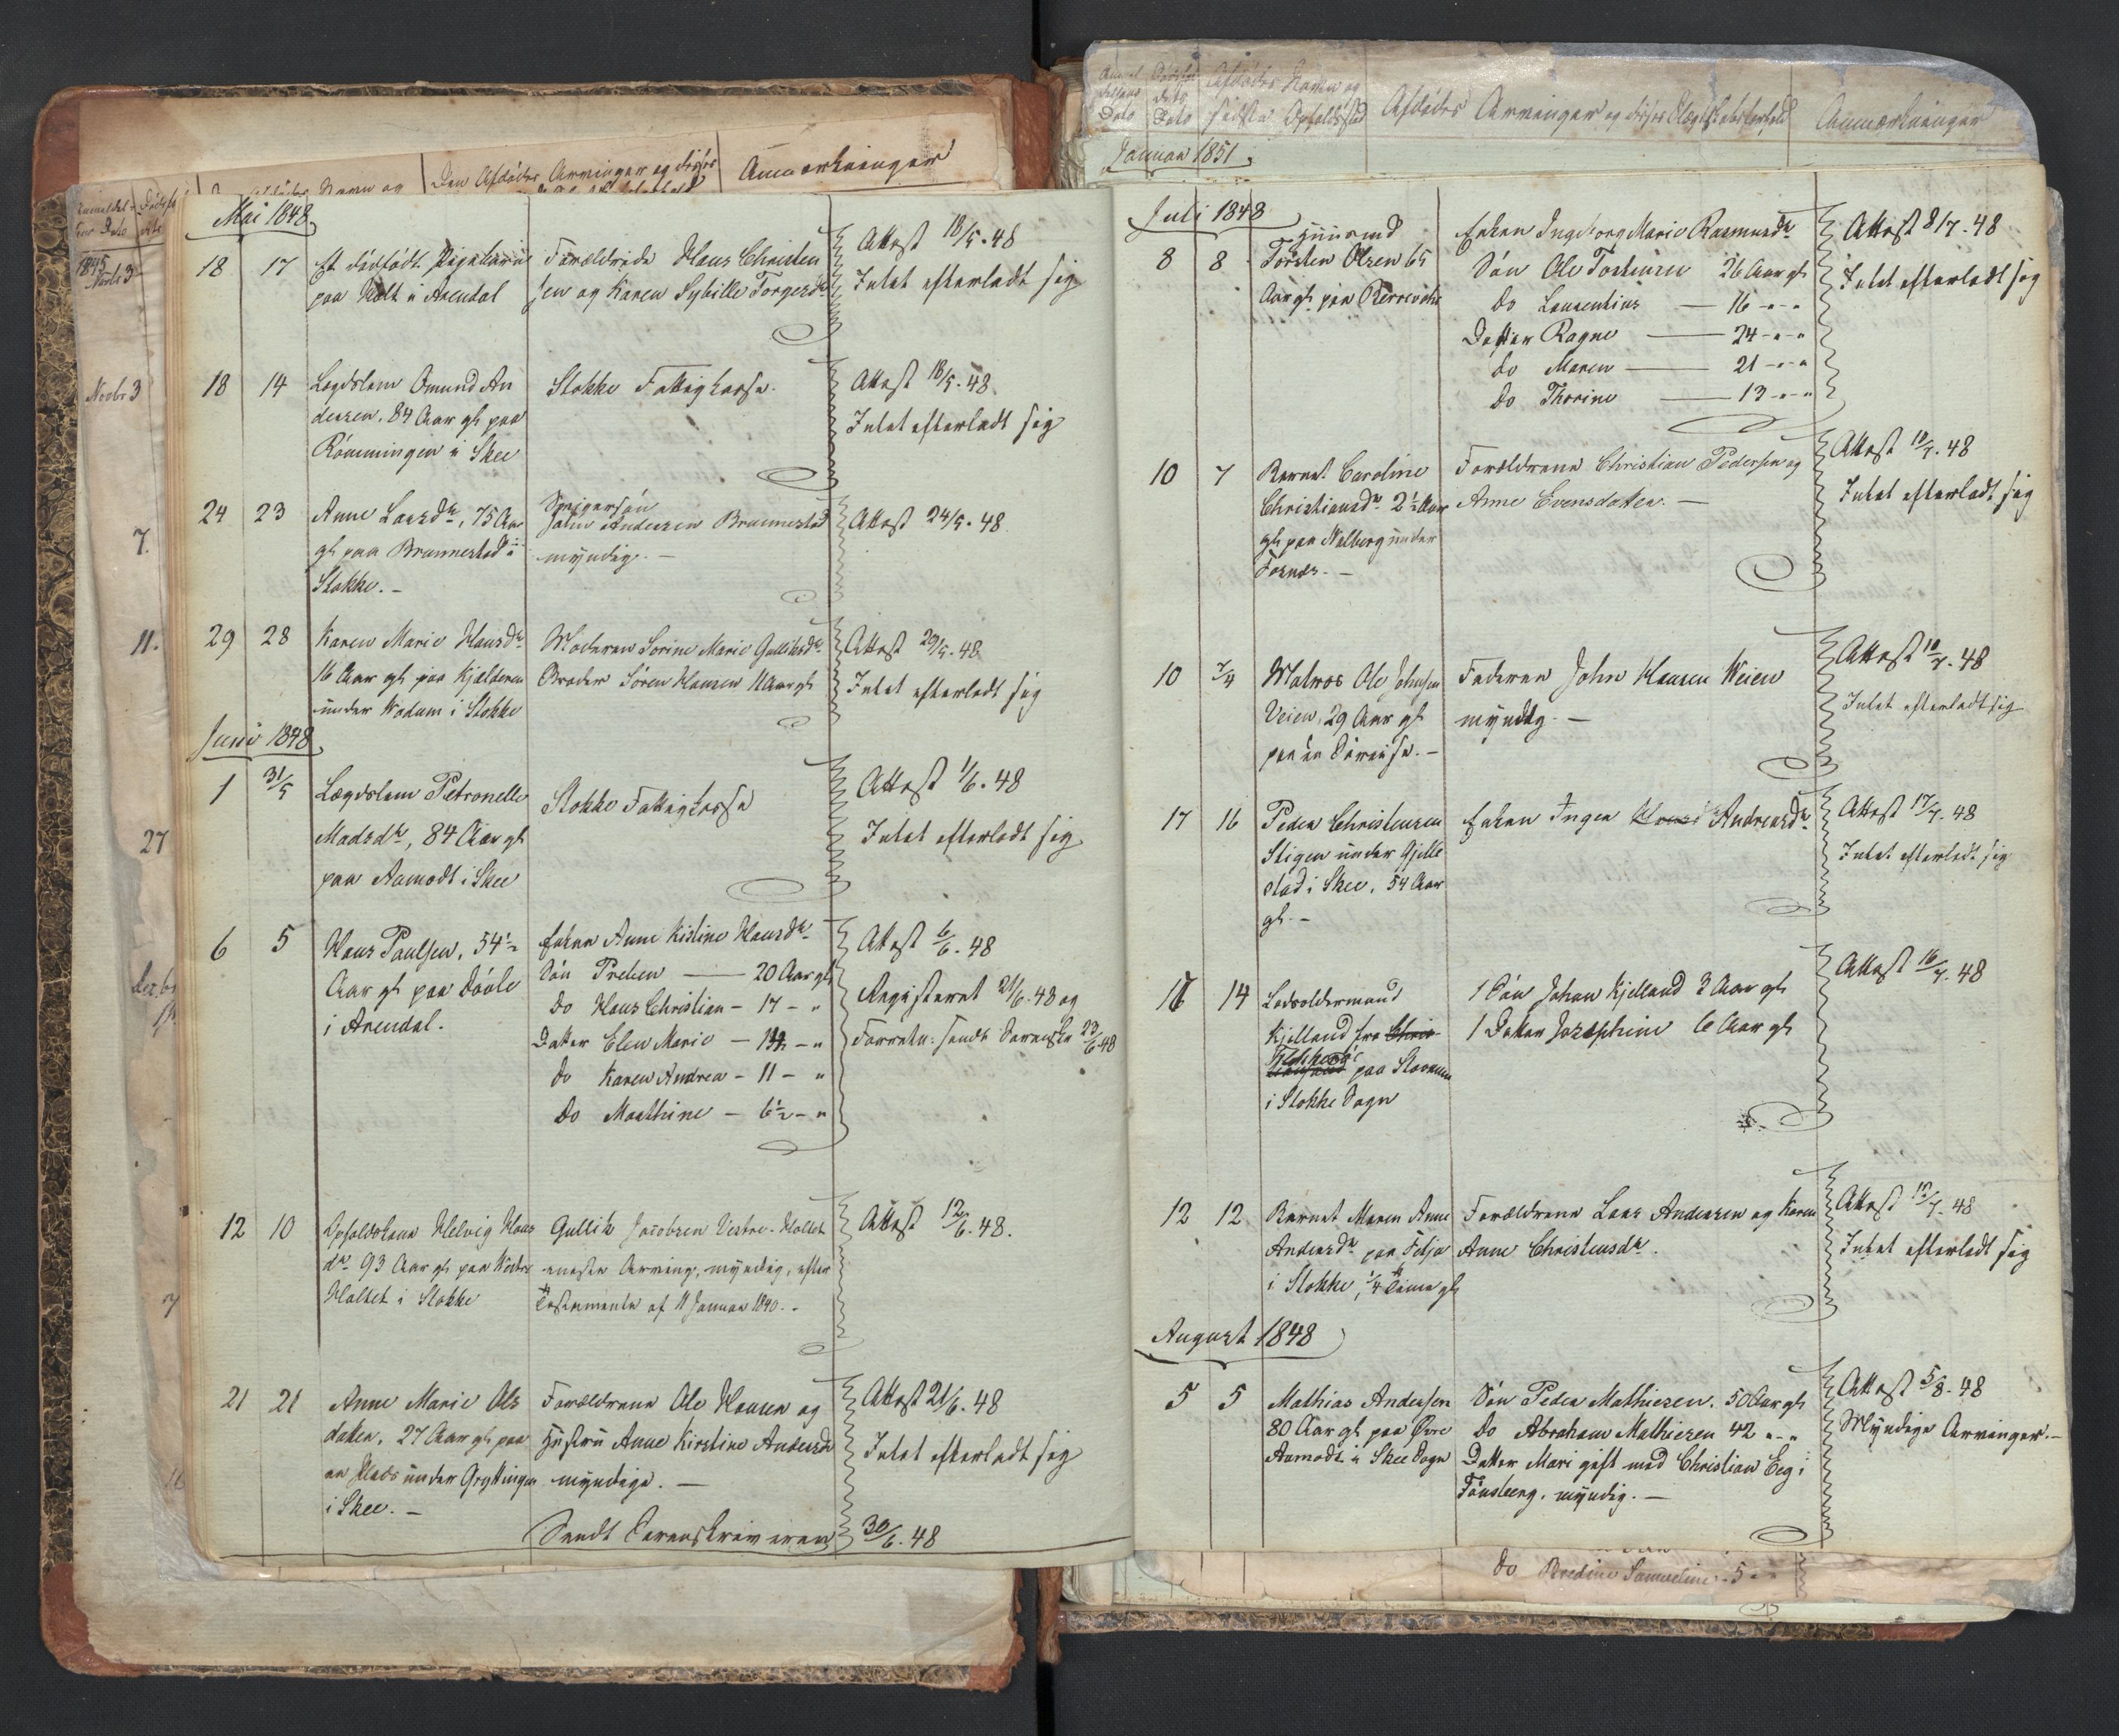 Anmærkninger
Mai 1848
18 17 Et dødfødt Pigebarn
paa Holt i Arendal
Forældrene Hans Christen
sen og Karen Sybille Torgersdr
Attest 18/5. 48
Intet efterladt sig
18 14 Lægdslem Omund An
dersen, 84 Aar gl paa
Rømmingen i Skee
Stokke Fattigkasse.
Attest 18/5. 48
Intet efterladt sig
24 23 Anne Larsdr, 75 Aar
gl paa Brunnestad i
Stokke. -
John Andersen Brunnestad
myndig. -
Attest 24/5. 48
29 28 Karen Marie Hansdr
16 Aar gl paa Kjælderen
under Wodum i Stokke
Moderen Sorine Marie Gulliksdr
Broder Sören Hansen 11 Aar gl
Attest 29/5. 48
Intet efterladt sig
Juni 1848
1 31/5 Lægdslem Petronelle
Madsdr, 84 Aar gl
paa Aamodt i Skee
Stokke Fattigkasse
Attest 1/6. 48
Intet efterladt sig
6 5 Hans Paulsen, 54½
Aar gl paa Døvle
i Arendal.
Enken Anne Kistine Hansdr
Søn Preben — 20 Aar gl
do Hans Christian - 17 - "
Datter Elen Marie -
do Karen Andrea - 11 - "
do Maathine - 6½ - "
Attest 6/6. 48
Registeret 21/6. 48 og
Forretn: sendt Sorenskr 23/6. 48
12 10 Opholdskone Helvig Hans
dr 93 Aar gl paa Vestre
Holtet i Stokke
Gullik Jacobsen Vestre-Holtet
eneste Arving, myndig, efter
Testamente af 11 Januar 1840. -
Attest 12/6. 48.
21 21 Anne Marie Ols
datter, 27 Aar gl paa
en Plads under Gryttingen
i Skee. -
Forældrene Ole Hansen og
Hustru Anne Kirstine Andersdr
myndige. -
Attest 21/6. 48
Intet efterladt sig
Sendt Sorenskriveren 30/6. 48
Afdødes Arvinger og disses Slægtskabsforhold
Anmærkninger
Januar 1851
Juli 1848
8 8 Huusmand
Torsten Olsen 65
Aar gl paa Rerrevik
Enken Ingeborg Marie Rasmusdr
Søn Ole Torstensen 26 Aar gl
do Laurentius — 16 - " - "
Datter Ragne — 24 - " - "
do Maren — 21 - " - "
do Thorine — 13 - " - "
Attest 8/7. 48
Intet efterladt sig
10 7 Barnet Caroline
Christiansdr 2½ Aar
gl paa Nalberg under
Fossnes. -
Forældrene Christian Pedersen og
Anne Evensdatter. -
Attest 10/7. 48
Intet efterladt sig
10 7/4 Matros Ole Johnsen
Veien, 29 Aar gl
paa en Søreise. -
Faderen John Hansen Weien
myndig. -
Attest 10/7. 48
Intet efterladt sig
17 16 Peder Christensen
Stigen under Gjelle
stad i Skee, 54 Aar
gl. -
Enken Inger Andreasdr
Attest 17/7. 48
Intet efterladt sig
14 Lodsoldermand
Kjelland fra
paa Stavnum
i Stokke Sogn
1 Søn Johan Kjelland 3 Aar gl
1 Datter Josephine 6 Aar gl
Attest 16/7. 48
12 12 Barnet Maren Anne
Andersdr paa Feljo
i Stokke, ¼ Time gl
Forældrene Lars Andersen og Karen
Anne Christensdr.
Attest 12/7. 48
Intet efterladt sig
August 1848
5 5 Mathias Andersen
80 Aar gl paa Øvre
Aamodt i Skee Sogn
Søn Peder Mathiesen. 50 Aar gl
do Abraham Mathiesen 42 " - "
Datter Mari gift med Christian Eeg i
Tønsberg, myndig. -
Attest 5/8. 48
Myndige Arvinger. -
do Bredine Samueline - 5 - "